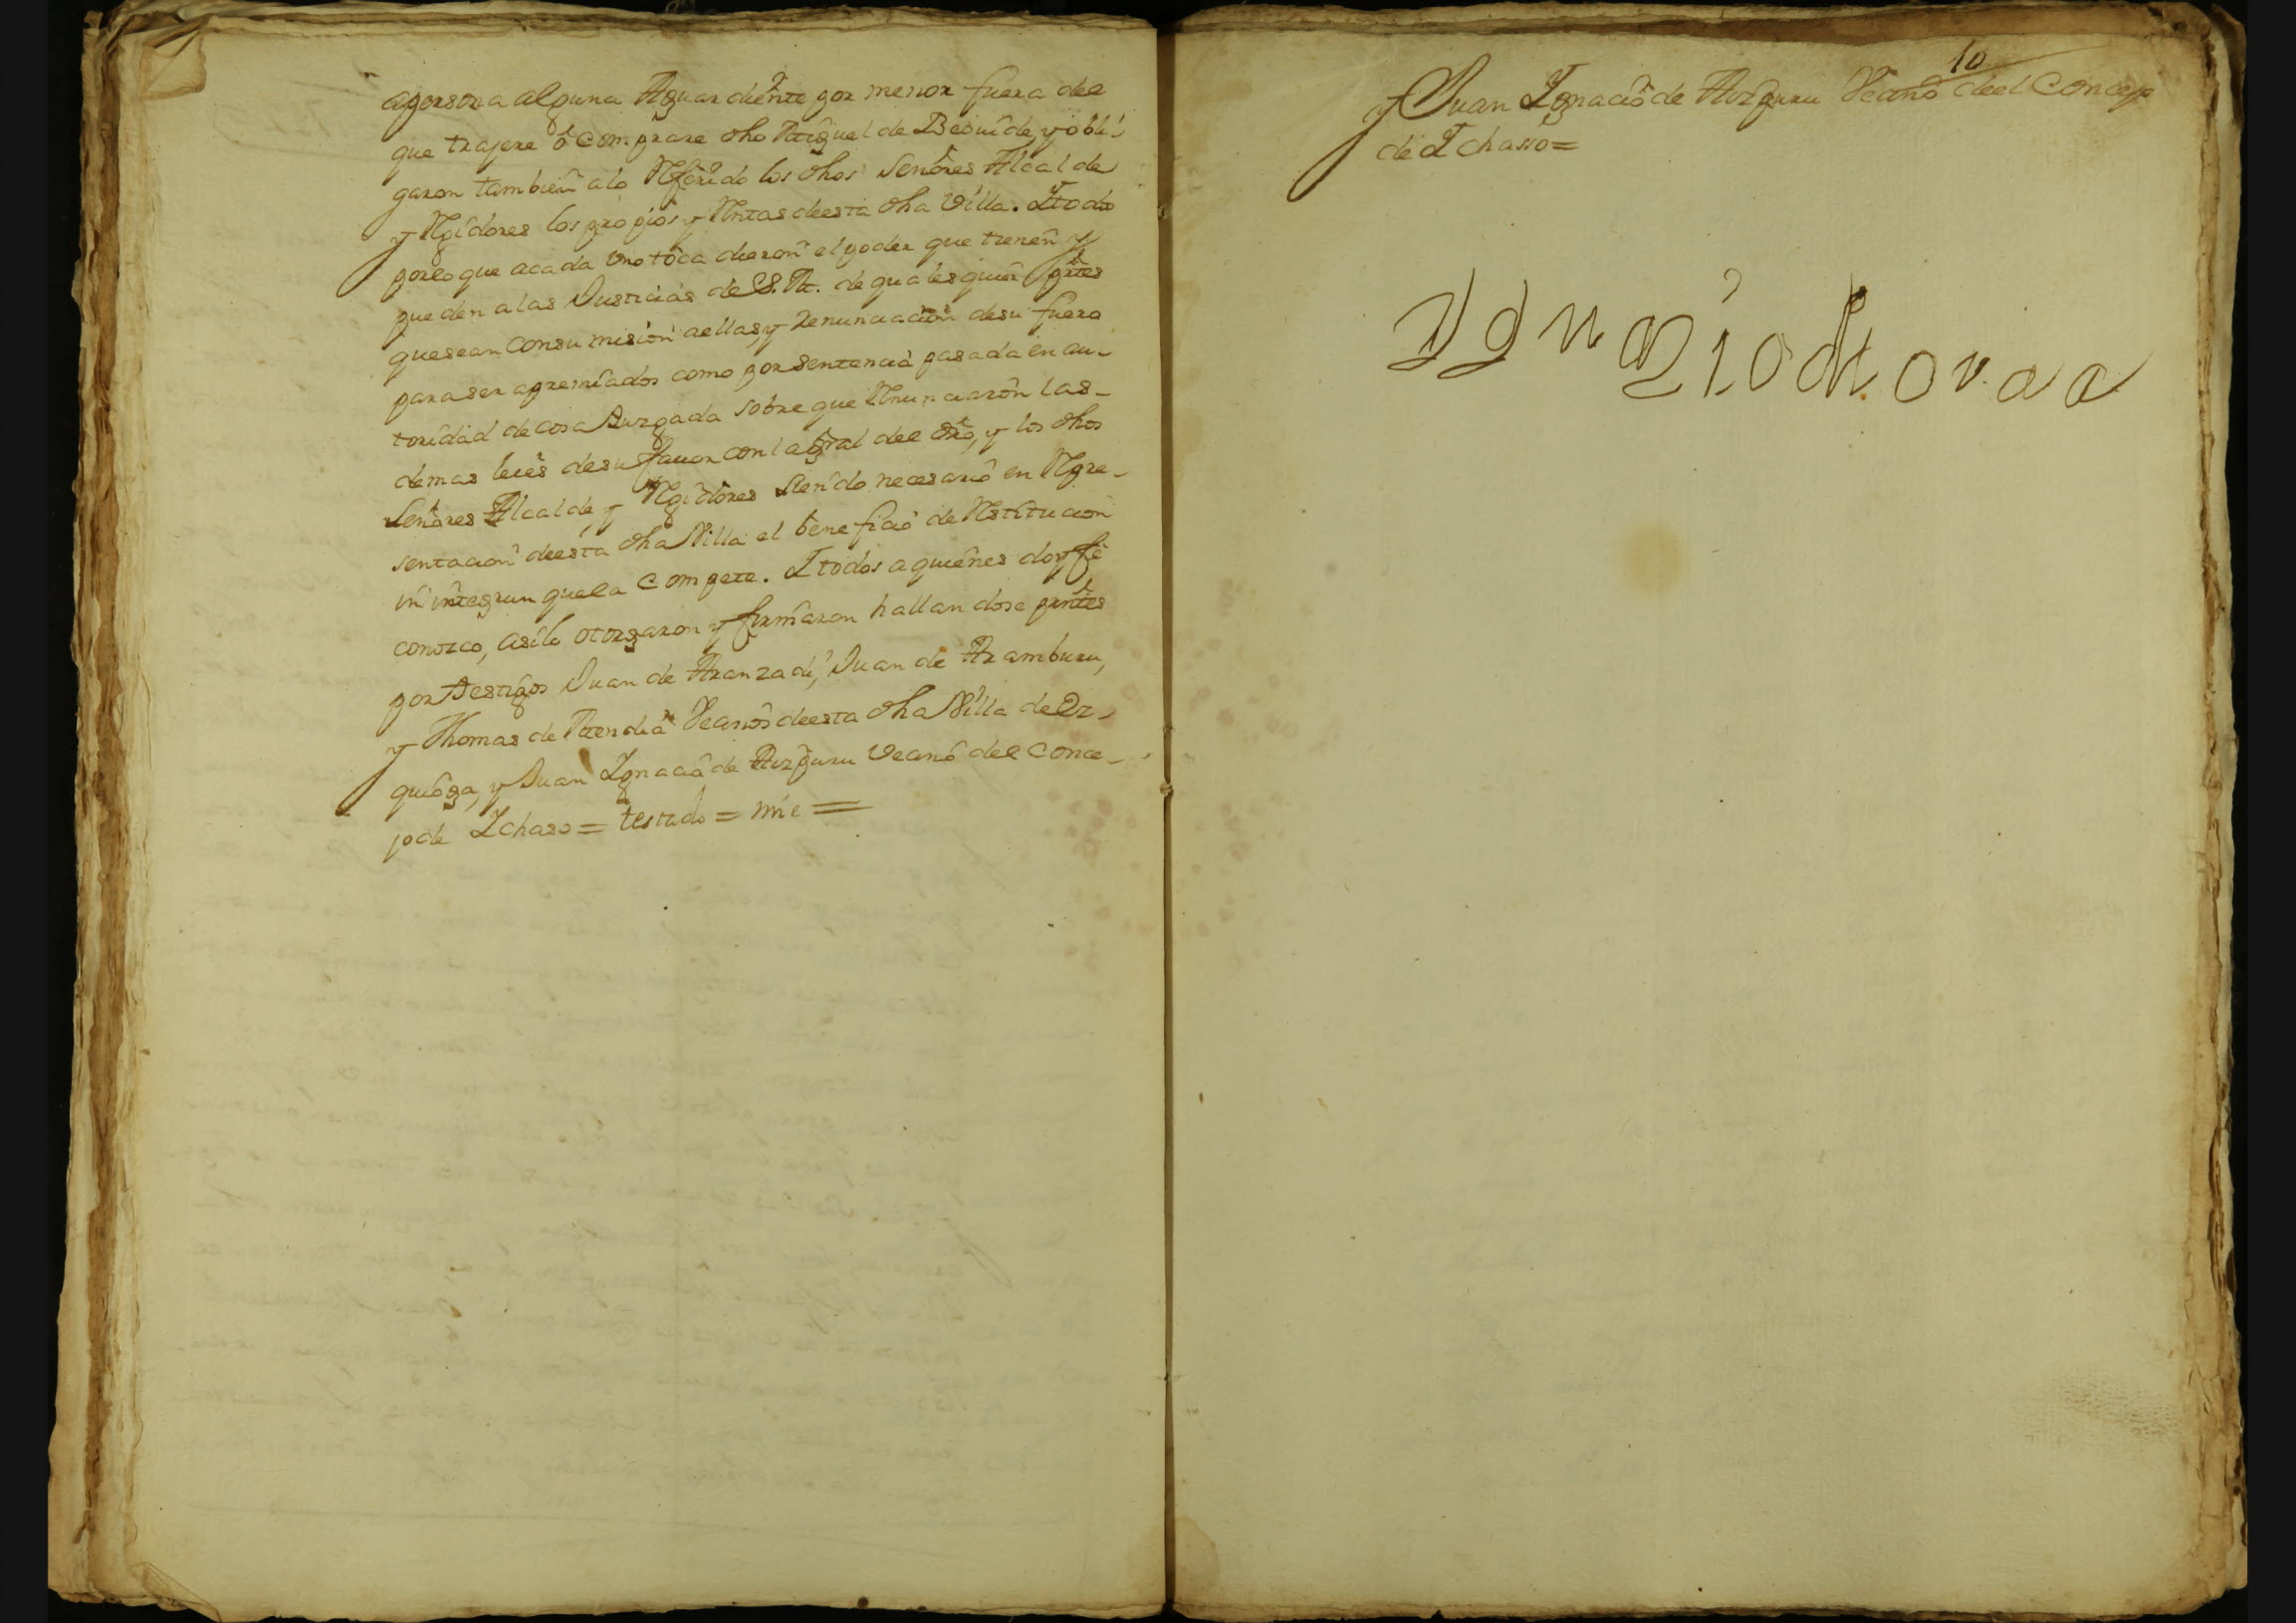 apersona alguna Aguardiente por menor fuera del
que trajere ô comprare dho Miguel de Beouide, y obli-
garon tambien alo Referido los dhos Señores Alcalde
y Regidores los propios y Rentas deesta dha Villa. Y todo
porlo que acada uno toca dieron el poder que tienen y
pueden alas Justicias de S. M. de qualesquier ptes
quesean consumision aellas, y renunciacion desu fuero
paraser apremiados como por sentencia pasada en au-
toridad de cosa Juzgada sobre que Renunciaron las-
demas leies desu fauor con la gral del dro, y los dhos
Señores Alcalde y Regidores siendo necesario en Repre-
sentacion deesta dha Villa el beneficio de Restitucion
in integrun quela compete. Y todos a quienes doy fe
conozco, asilo otorgaron y firmaron hallandose pntes
por testigos Juan de Aranzadi, Juan de Aramburu,
y Thomas de Mendia Vecinos deesta dha Villa de Ez-
quioga, y Juan Ignacio de Aizpuru Vecino del Conce-
jo de Ichaso = testado = mil =
10
y Juan Ignacio de Aizpuru Vecino deel Concejo
de Ichasso =